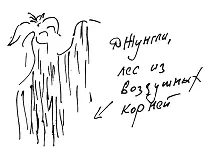 Джунгли,
лес из
воздушных
корней